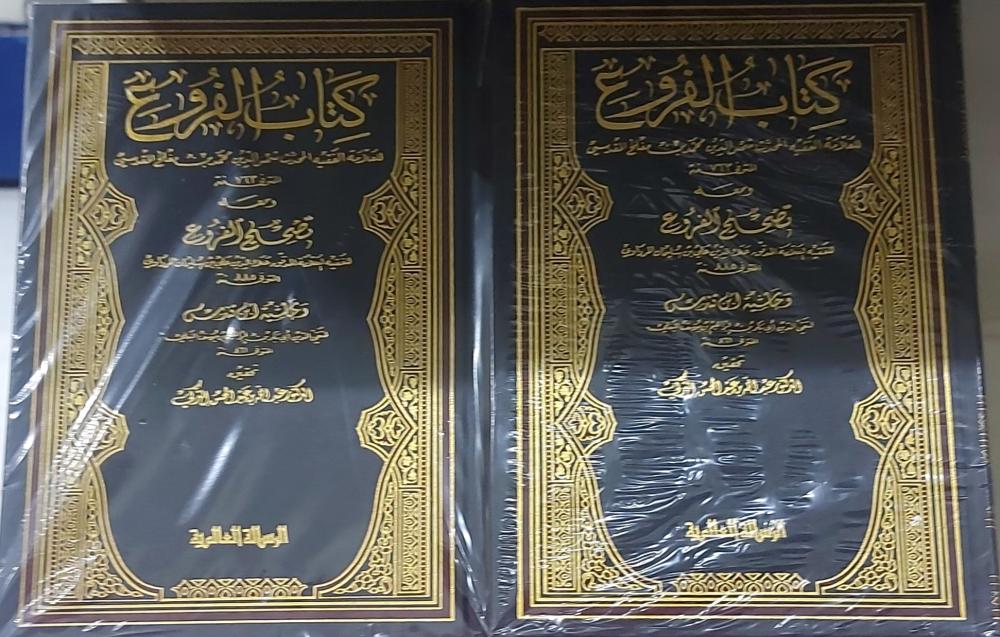 كتاب الفروع
للعلامة الفقيه المحدث شمس الدين محمد بن مفلح المقدسي
المتوفى ٧٦٣ هـ
ومعه
تصحيح الفروع
المتوفى ٨٨٥ هـ
وحاشية ابن قندس
المتوفى ٨٦١ هـ
تحقيق
الدكتور عبد الله بن عبد المحسن التركي
الرسالة العالمية
كتاب الفروع
للعلامة الفقيه المحدث شمس الدين محمد بن مفلح المقدسي
المتوفى ٧٦٣ هـ
ومعه
تصحيح الفروع
المتوفى ٨٨٥ هـ
وحاشية ابن قندس
المتوفى ٨٦١ هـ
تحقيق
الدكتور عبد الله بن عبد المحسن التركي
الرسالة العالمية